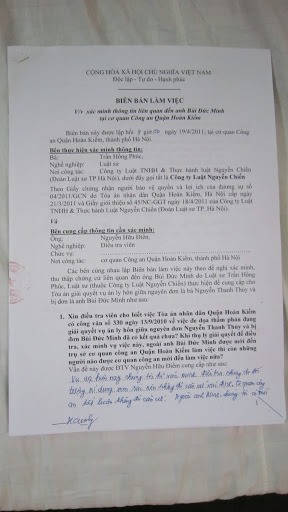 CỘNG HÒA XÃ HỘI CHỦ NGHĨA VIỆT NAM
Độc lập - Tự do - Hạnh phúc
BIÊN BẢN LÀM VIỆC
V/v xác minh thông tin liên quan đến anh Bùi Đức Minh
tại cơ quan Công an Quận Hoàn Kiếm
Biên bản này được lập hồi giờ ngày 19/4/2011, tại cơ quan Công
an Quận Hoàn Kiếm, thành phố Hà Nội.
Bên thực hiện xác minh thông tin:
Bà: Trần Hồng Phúc,
Nghề nghiệp: Luật sư
Nơi công tác: Công ty Luật TNHH & Thực hành luật Nguyễn Chiến
(Đoàn Luật sư TP Hà Nội), dưới đây gọi tắt là Công ty Luật Nguyễn Chiến
Theo Giấy chứng nhận người bảo vệ quyền và lợi ích của đương sự số
04/2011/GCN do Tòa án nhân dân Quận Hoàn Kiếm, Hà Nội cấp ngày
21/3/2011 và Giấy giới thiệu số 45/NC-GGT ngày 18/4/2011 của Công ty Luật
TNHH & Thực hành luật Nguyễn Chiến (Đoàn Luật sư TP. Hà Nội).
Và
Bên cung cấp thông tin cần xác minh:
Ông: Nguyễn Hữu Điền,
Nghề nghiệp: Điều tra viên
Chức vụ:
Nơi công tác: cơ quan Công an Quận Hoàn Kiếm, thành phố Hà Nội
Các bên cùng nhau lập Biên bản làm việc này theo đề nghị xác minh,
thu thập chứng cứ liên quan đến ông Bùi Đức Minh do Luật sư Trần Hồng
Phúc, Luật sư (thuộc Công ty Luật Nguyễn Chiến) thực hiện để cung cấp cho
Tòa án giải quyết vụ án ly hôn giữa nguyên đơn là bà Nguyễn Thanh Thủy và
bị đơn là anh Bùi Đức Minh như sau:
1. Xin điều tra viên cho biết việc Tòa án nhân dân Quận Hoàn Kiếm
có công văn số 330 ngày 13/9/2010 về việc đe dọa thẩm phán đang
giải quyết vụ án ly hôn giữa nguyên đơn Nguyễn Thanh Thủy và bị
đơn Bùi Đức Minh đã có kết quả chưa? Khi thụ lý giải quyết để điều
tra, xác minh vụ việc này, ngoài anh Bùi Đức Minh được mời đến
trụ sở cơ quan công an Quận Hoàn Kiếm làm việc thì còn những
người nào được cơ quan công an mời đến làm việc nữa?
Vấn đề này được ĐTV Nguyễn Hữu Điền cung cấp như sau: